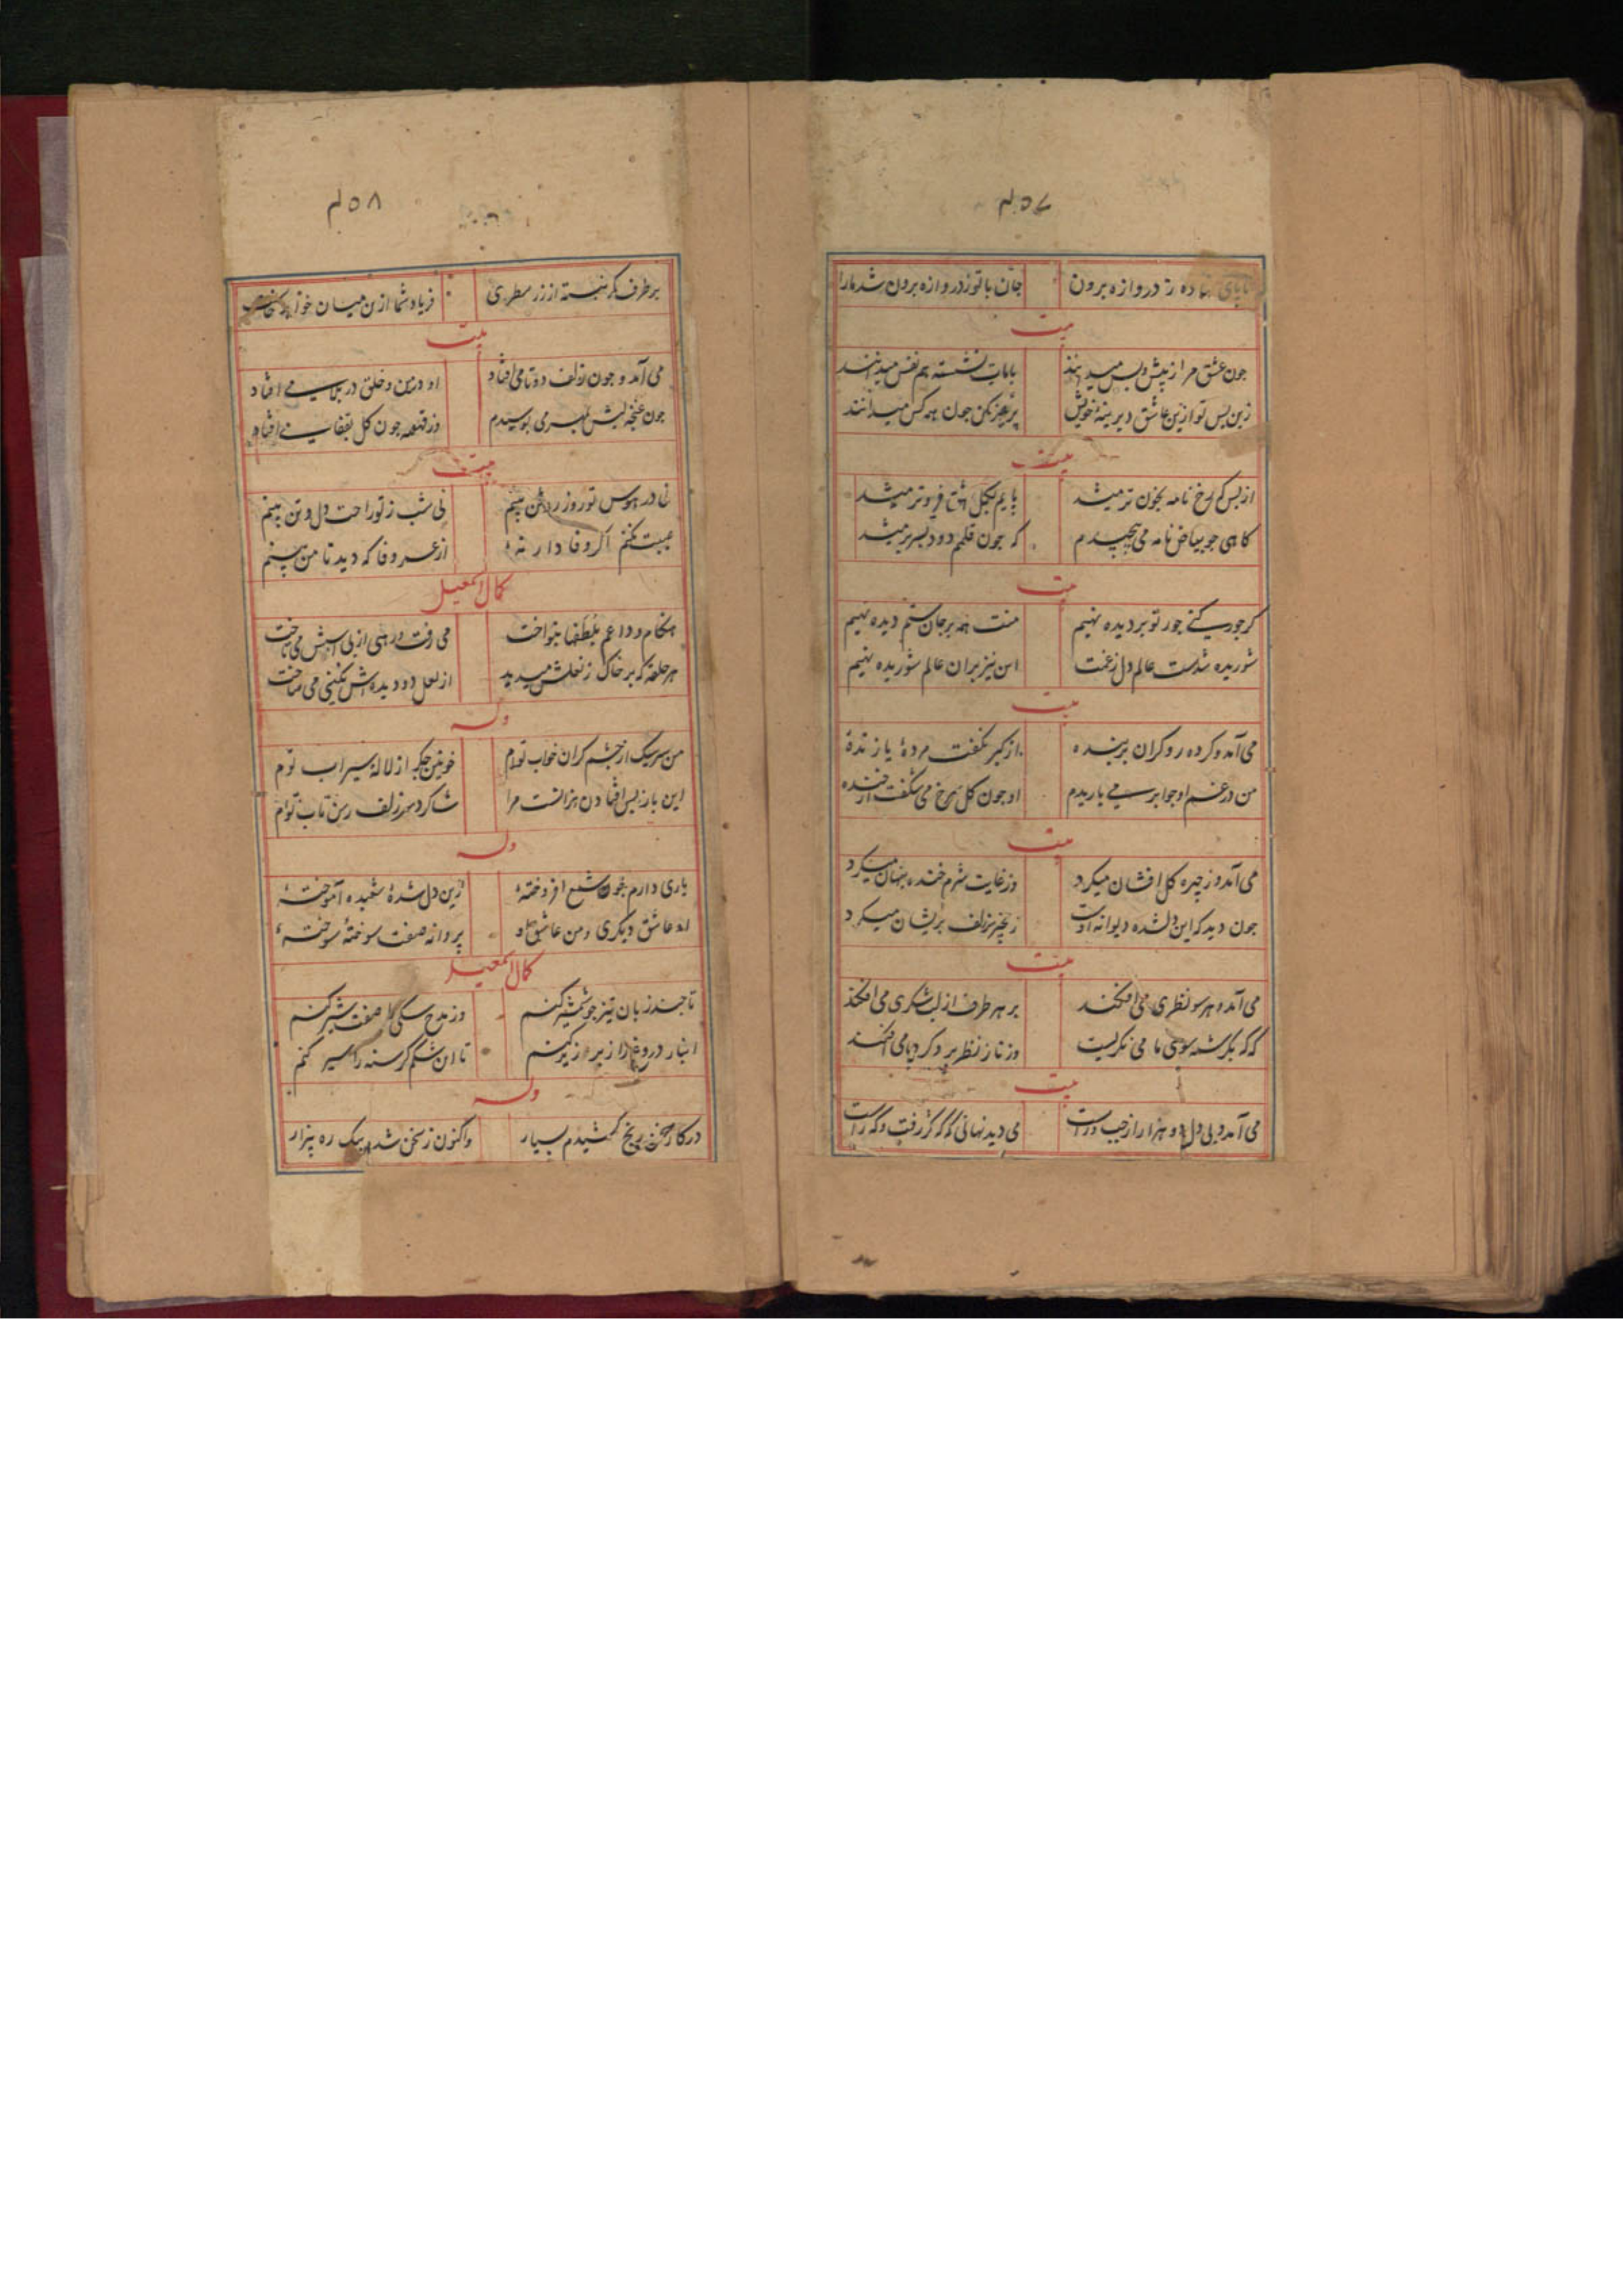 ۴۵۷
نهاده ز دروازه برون جان با تو ز دروازه برون شد مارا
بیت
جون عشق مرا ز پیش و پس میدانند با مات نشسته هم نفس میدانند
زین پس تو ازین عاشق دیرینهٔ خویش پرهیز مکن جون همه کس میدانند
بیت
از بس که رخ نامه بخون تر میشد پایم بکل عشق فروتر میشد
کاهی جو بیاض نامه می‌پیچیدم که جون قلمم دود بسر بر میشد
بیت
کر جور کنی جور تو بر دیده نهیم منت همه بر جان ستم دیده نهیم
شوریده شدست عالم دل ز غمت این نیز بران عالم شوریده نهیم
بیت
می‌آمد و کرده رو کران بر بنده از کبر نکفت مردهٔ یا زندهٔ
من در غم او جو ابر می باریدم او جون کل سرخ می شکفت از خنده
بیت
می‌آمد و ز چهره کل افشان میکرد وز غایت شرم خنده پنهان میکرد
جون دید که این دلشده دیوانه اوست زنجیر سر زلف پریشان میکرد
بیت
می‌آمد و هر سو نظری می افکند بر هر طرف از لب شکری می افکند
که که بکرشمه سوی ما می نکریست وز ناز نظر بر دکری می افکند
بیت
می‌آمد و بی دل دو هزار از چپ و راست می دید نهانی که که کژ رفت و که راست
۴۵۸
بر طرف کمر نبسته از زر سطری فریاد شما ازین میان خواهد خاست
بیت
می‌آمد و جون زلف دوتا می افتاد او در من و خلق در بلا می افتاد
جون غنچه لبش بمهر می بوسیدم وز قهقهه جون کل بقفا می افتاد
بیت
نی در هوس تو روز روشن بینم نی شب ز تو راحت دل و تن بینم
عیبت نکنم اکر وفادار نهٔ از عمر وفا که دید تا من بینم
کمال اسمعیل
هنکام وداعم بلطفها بنواخت می رفت و رهی از پی اسبش می تاخت
هر حلقه که بر خاک ز نعلش میدید از لعل دو دیده‌اش نکینی می ساخت
وله
من سرسبک از چشم کران خواب توام خونین جکر از لالهٔ سیراب توام
این باز پس افتادن هر آنست مرا شاکرد سر زلف رسن تاب توام
وله
یاری دارم جون شمع افروختهٔ زین دل شدهٔ شعبده آموختهٔ
او عاشق دیکری و من عاشق او پروانه صفت سوختهٔ سوختهٔ
کمال اسمعیل
تا چند زبان تیز جو شمشیر کنم وز مدح سکی را صفت شیر کنم
انبار دروغ را زبر زیر کنم تا این شکم کرسنه را سیر کنم
وله
در کار سخن رنج کشیدم بسیار واکنون ز سخن شدم بیک ره بیزار